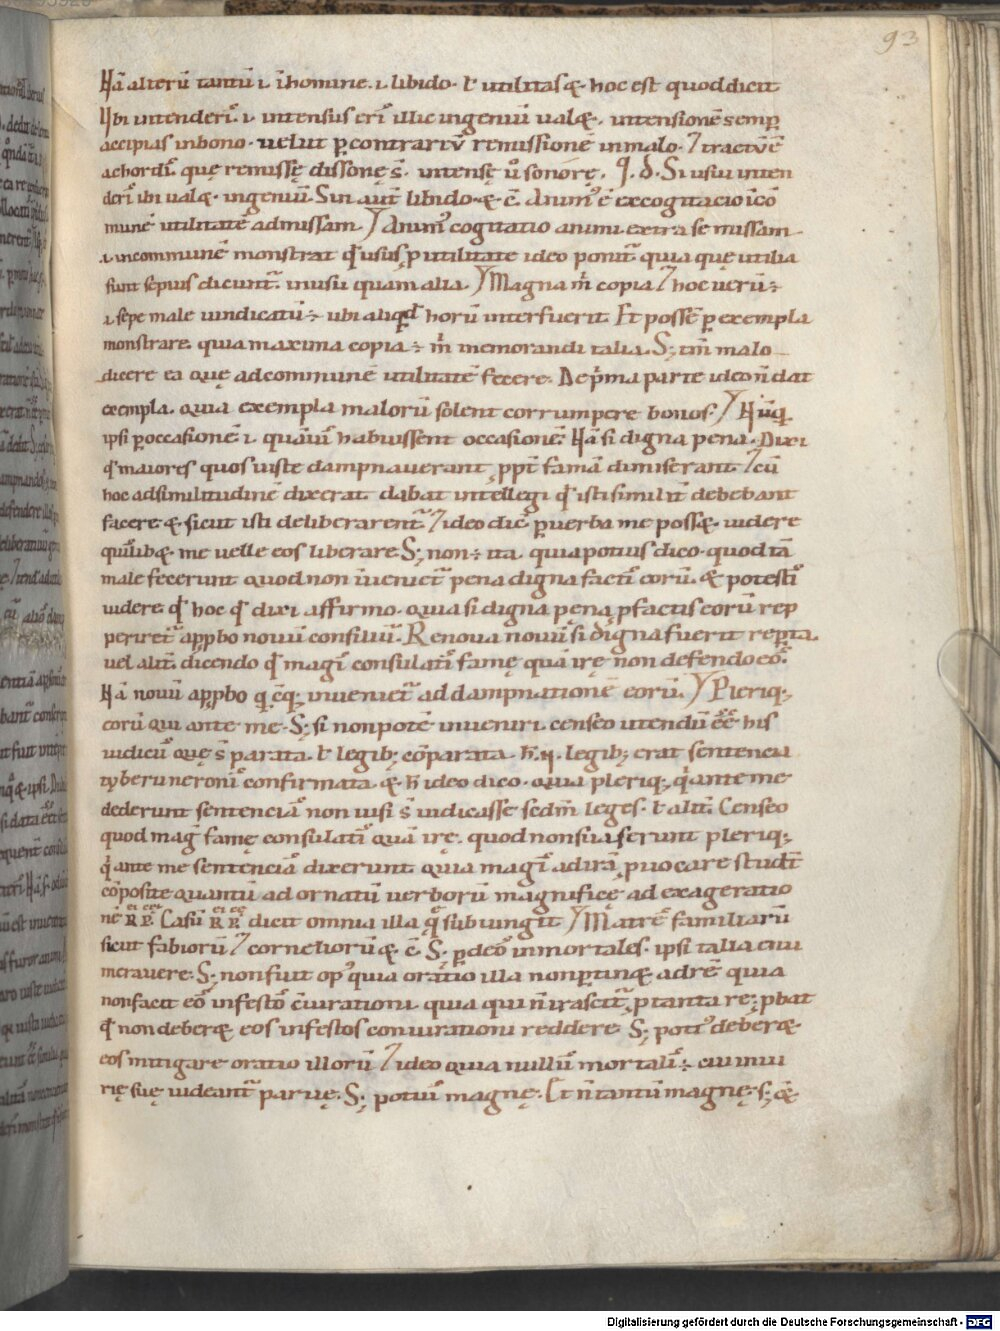 93
Nā alterū tantū ı ī homine. ı libido. ł utilitas &. hoc est quod dicit
Ubi intenderı̄. ı intensius erı̄ illic ingeniū ualæ. intensionē semp̄
accipias in bono. uelut p̱ contrariū remissionē in malo. tractū ē
a chordı̄. quę remissę dissonę s̄. intensę ū̊ sonorę. Si usiu inten
derı̄ ibi ualæ. ingeniū. Sin aut̄ libido. &. c̄. Animꝰ ē excogitacio ī cō
mune utilitatē admissam. Animꝰ cogitatio animi extra se missam
ı in commune monstrat qđ usus p̱ utilitate ideo ponit̄ quia quę utilia
sunt sepius dicunt̄ in usu quam alia. Magna m̄ copia hoc uerū ÷
ı sepe male uindicatū ÷ ubi aliquid horū interfuerit. Et possē p̱ exempla
monstrare. quia maxima copia ÷ m̄ memorandi talia. S; tm̄ malo
dicere ea quę ad commune utilitatē fecere. De p̄ma parte ideo n̄ dat
exempla. quia exempla malorū solent corrumpere bonos.
ipsi p̱ occasionē ı quāuı̄ habuissent occasionē. Nā si digna pena. Dixi
qđ maiores quos iuste dampnauerant ppt̄ famā dimiserant. cū
hoc ad similitudinē dixerat dabat intellegi qđ isti similit̄ debebant
facere & sicut isti deliberarent̄ ideo dic̄ p̱ uerba me possæ. uidere
quilibæ. me uelle eos liberare S; non ÷ ita quia potius dico. quod tā
male fecerunt quod non inueniet̄ pena digna factı̄ eorū. & potestı̄
uidere qđ hoc qđ dixi affirmo. quia si digna pęna p factis eorū rep
periret̄ appbo nouū consiliū. Re noua nouū si digna fuerit rep̱ta
uel alit̄. dicendo qđ magı̄ consulatı̄ famę quā irę non defendo eos̄.
Nā nouū appbo q. c̄q; inueniet̄ ad dampnationē eorū. Pleriq;
eorū qui ante me. S; si non potē inueniri. censeo utendū ēē his
iudiciı̄ quę s̄ parata. ł legib; cōparata. h. ıı. legib; erat sentencia
tyberii neronı̄ confirmata. & h ideo dico. quia pleriq; q̄ ante me
dederunt sentenciā non uisi s̄ indicasse sedm̄ leges. ł alit̄. Censeo
quod maḡ famę consulatı̄ quā irę. quod non fuiserunt pleriq;
q̄ ante me sentenciā dixerunt quia magı̄ ad irā puocare studēt
cōposite quantū ad ornatū uerborū magnificę ad exageratio
nē R̄R̄ P̄. Casū R̄R̄ P̄ dicit omnia illa q̄ subiungit Matrē familiarū
sicut fabiorū corneliorū &. c̄. S; p̱ deos̄ inmortales. ipsi talia enu
merauere. S; non fuit opꝰ quia oratio illa non p̱tinæ ad rē quia
non facit eos̄ infestos̄ c̄iurationi quia qui n̄ irascit̄ p tanta re; pbat
qđ non deberæ eos infestos coniurationi reddere S; potiꝰ deberæ
eos mitigare oratio illorū ideo quia nulliū mortalı̄ū ÷ cui iniu
rię suę uideant̄ paruę. S; potiū magnę. Et n̄ tantū magnę. s; &
Digitalisierung gefördert durch die Deutsche Forschungsgemeinschaft - DFG